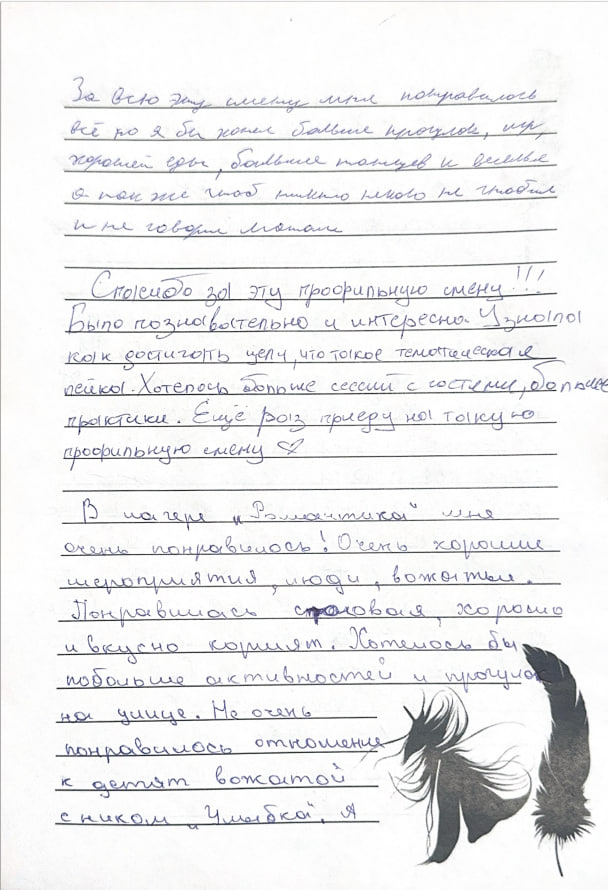 За всю эту смену мне понравилось
всё но я бы хотел больше прогулок, игр,
хорошей еды, больше танцев и веселья
а так же чтоб никто никого не гнобил
и не говорил
Спасибо за эту профильную смену!!!
Было познавательно и интересно. Узнала
как достигать цели, что такое тематическая
лейка. Хотелось больше сессий с гостями, более
практики. Ещё раз приеду на такую
профильную смену ♡
В лагере "Романтика" мне
очень понравилось! Очень хорошие
мероприятия, люди, вожатые.
Понравилась столовая, хорошо
и вкусно кормят. Хотелось бы
побольше активностей и прогулок
на улице. Не очень
понравилось отношение
к детям вожатой
с ником "Улыбка". Я